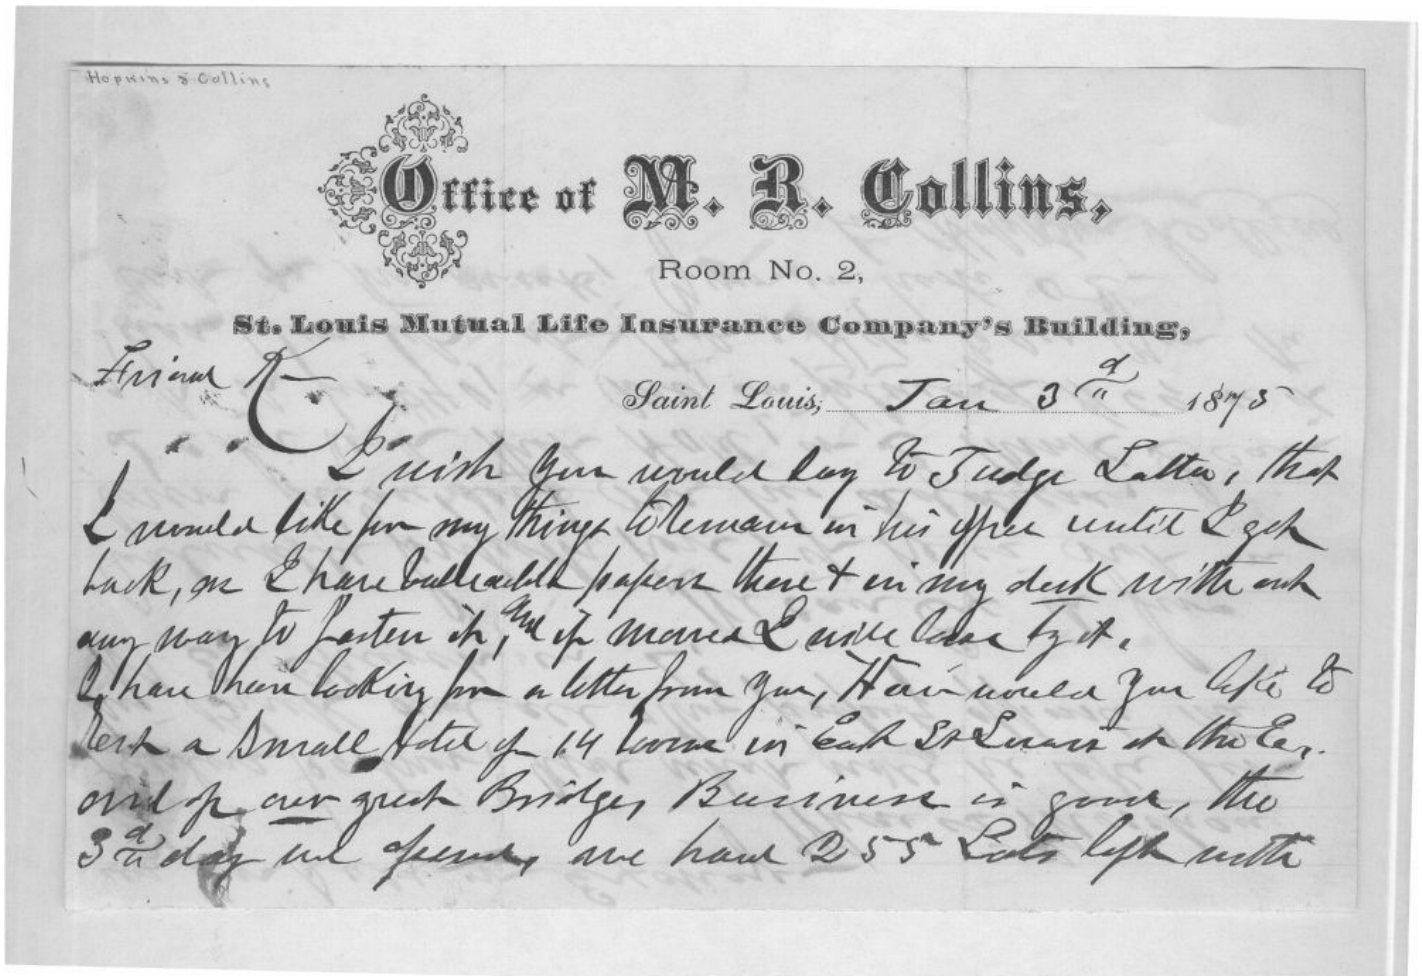 Hopkins & Collins
Office of M. R. Collins,
Room No. 2,
St. Louis Mutual Life Insurance Company's Building,
Friend K
Saint Louis, Jan 3d 1875
I wish you would say to Judge that
I would like for my things to remain in his office until I get
back, as I have valuable papers there & in my desk with out
any way to fasten it, and if moved I will loose by it.
I have been looking for a letter from you, How would you like to
Rent a Small Hotel of 14 rooms in East St Louis at the Ea.
end of our great Bridge, Business is good, the
3d day we opened, we have 255 Lots left with